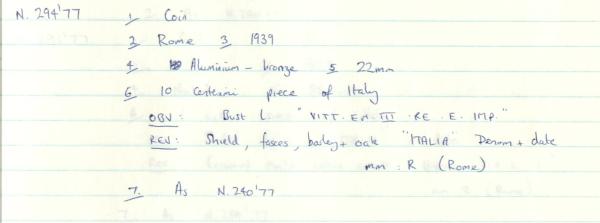 N. 294'77 1 Coin
2 Rome 3 1939
4. Aluminium - bronze 5 22mm
6 10 Centesimi piece of Italy
OBV: Bust L "VITT. EM. III. RE. E. IMP."
REV: Shield, fasces, barley + oak "ITALIA" Denom + date
mm: R (Rome)
7. As N.240'77